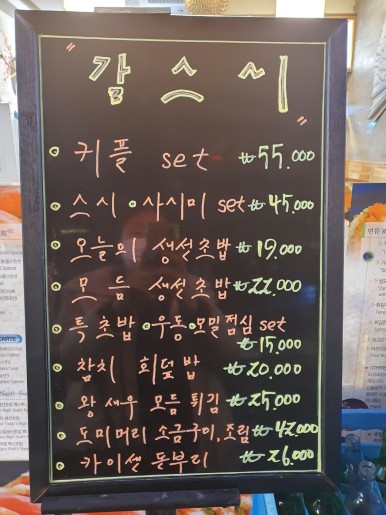 " 감 스 시 "
커플 set ₩55.000
스시·사시미 set ₩45.000
오늘의 생선초밥 ₩19.000
모 듬 생선초밥 ₩22.000
특초밥·우동·모밀점심 set
₩15.000
참치 회덮밥 ₩20.000
왕새우 모듬 튀김 ₩25.000
도미머리 소금구이,조림 ₩42.000
카이센 돈부리 ₩26.000